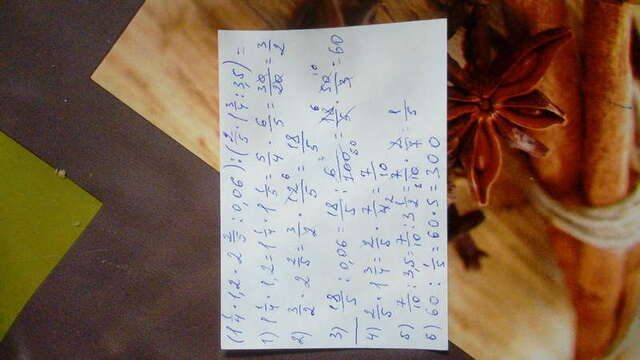 (1 1/4 · 1,2 · 2 2/5 : 0,06) : (2/5 · 1 3/4 : 3,5) =
1) 1 1/4 · 1,2 = 1 1/4 · 1 1/5 = 5/4 · 6/5 = 30/20 = 3/2
2) 3/2 · 2 2/5 = 3/2 · 12 6/5 = 18/5
3) 18/5 : 0,06 = 18/5 : 6 3/100 50 = 18 6/5 · 50 10/3 = 60
4) 2/5 · 1 3/4 = 2/5 · 7/4 2 = 7/10
5) 7/10 : 3,5 = 7/10 : 3 1/2 = 7/10 5 · 2/7 = 1/5
6) 60 : 1/5 = 60 · 5 = 300